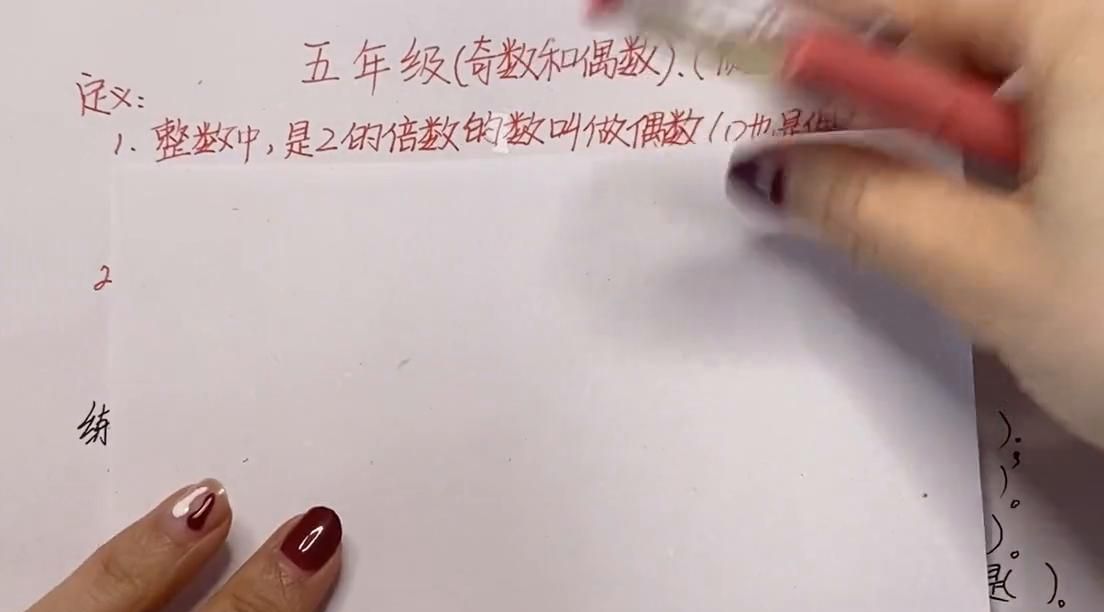 五年级(奇数和偶数).(
定义:
1. 整数中,是2的倍数的数叫做偶数(0也是
2
练
)。
)。
)。
是( )。